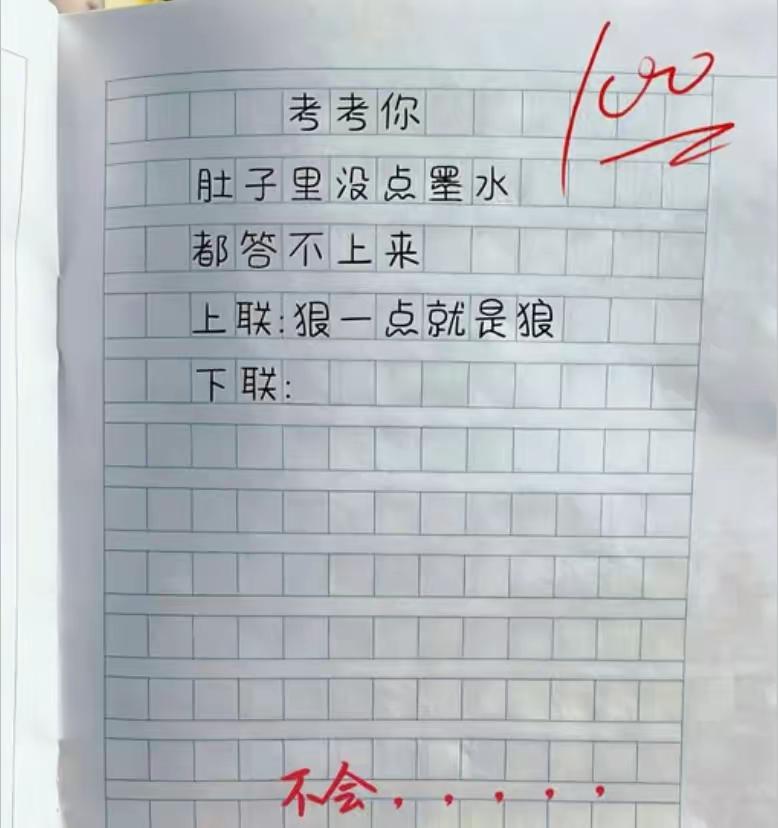 100
考考你
肚子里没点墨水
都答不上来
上联:狠一点就是狼
下联:
不会，，，，，